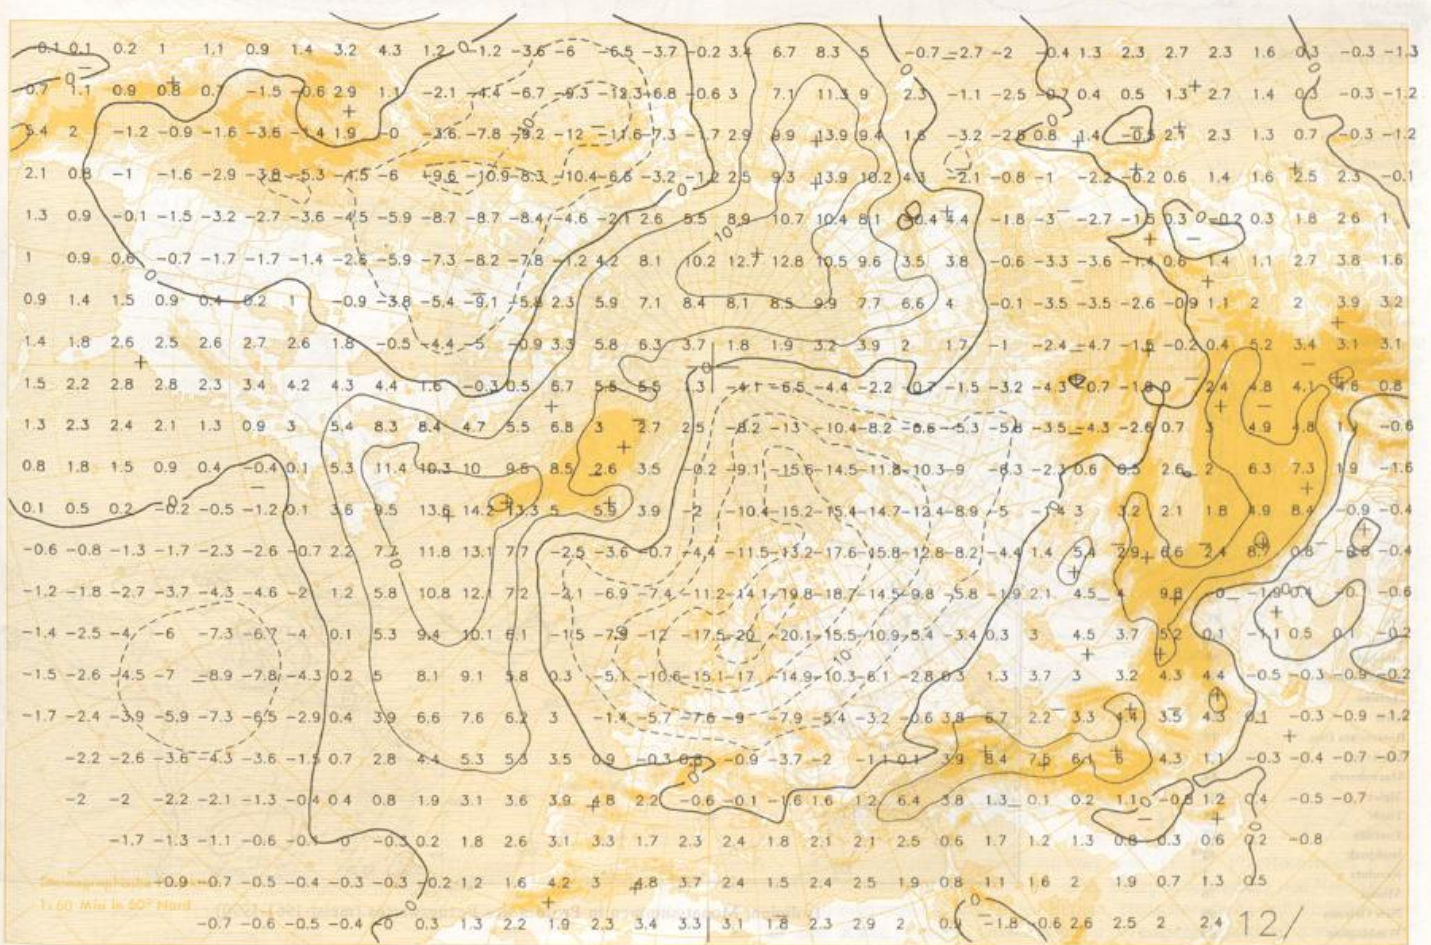 -0.1 0.1 0.2 1 1.1 0.9 1.4 3.2 4.3 1.2 0 -1.2 -3.6 -6 -6.5 -3.7 -0.2 3.4 6.7 8.3 5 -0.7 -2.7 -2 -0.4 1.3 2.3 2.7 2.3 1.6 0.3 -0.3 -1.3
0.7 1.1 0.9 0.8 0.7 -1.5 -0.6 2.9 1.1 -2.1 -4.4 -6.7 -9.3 -12.3 -6.8 -0.6 3 7.1 11.3 9 2.3 -1.1 -2.5 -0.7 0.4 0.5 1.3 2.7 1.4 0.3 -0.3 -1.2
5.4 2 -1.2 -0.9 -1.6 -3.6 -1.4 1.9 -0 -3.6 -7.8 -9.2 -12 -11.6 -7.3 -1.7 2.9 9.9 13.9 9.4 1.6 -3.2 -2.8 0.8 1.4 -0.5 2.1 2.3 1.3 0.7 -0.3 -1.2
2.1 0.8 -1 -1.6 -2.9 -3.8 -5.3 -4.5 -6 -9.6 -10.9 -8.3 -10.4 -6.6 -3.2 -1.2 2.5 9.3 13.9 10.2 4.3 -2.1 -0.8 -1 -2.2 -0.2 0.6 1.4 1.6 2.5 2.3 -0.1
1.3 0.9 -0.1 -1.5 -3.2 -2.7 -3.6 -4.5 -5.9 -8.7 -8.7 -8.4 -4.6 -2.1 2.6 5.5 8.9 10.7 10.4 8.1 -0.4 4.4 -1.8 -3 -2.7 -1.5 0.3 -0.2 0.3 1.8 2.6 1
1 0.9 0.6 -0.7 -1.7 -1.7 -1.4 -2.6 -5.9 -7.3 -8.2 -7.8 -1.2 4.2 8.1 10.2 12.7 12.8 10.5 9.6 3.5 3.8 -0.6 -3.3 -3.6 -1.4 0.6 1.4 1.1 2.7 3.8 1.6
0.9 1.4 1.5 0.9 0.4 0.2 1 -0.9 -3.8 -5.4 -9.1 -5.8 2.3 5.9 7.1 8.4 8.1 8.5 9.9 7.7 6.6 4 -0.1 -3.5 -3.5 -2.6 -0.9 1.1 2 2 3.9 3.2
1.4 1.8 2.6 2.5 2.6 2.7 2.6 1.8 -0.5 -4.4 -5 -0.9 3.3 5.8 6.3 3.7 1.8 1.9 3.2 3.9 2 1.7 -1 -2.4 -4.7 -1.5 -0.2 0.4 5.2 3.4 3.1 3.1
1.5 2.2 2.8 2.8 2.3 3.4 4.2 4.3 4.4 1.6 -0.3 0.5 6.7 5.5 -4.1 -6.5 -4.4 -2.2 -0.7 -1.5 -3.2 -4.3 -0.7 2.4 4.8 4.1 4.6 0.8
1.3 2.3 2.4 2.1 1.3 0.9 3 5.4 8.3 8.4 4.7 5.5 6.8 3 2.7 2.5 -8.2 -13 -10.4 -8.2 -6.6 -5.3 -5.8 -3.5 -4.3 -2.6 0.7 3 4.9 4.8 -0.6
0.8 1.8 1.5 0.9 0.4 -0.4 0.1 5.3 11.4 10.3 10 9.5 8.5 2.6 3.5 -0.2 -9.1 -15.6 -14.5 -11.8 -10.3 -9 -6.3 -2.3 0.6 0.5 2.6 2 6.3 7.3 1.9 -1.6
0.1 0.5 0.2 -0.2 -0.5 -1.2 0.1 3.6 9.5 13.6 14.2 13.3 5 5.9 3.9 -2 -10.4 -15.2 -15.4 -14.7 -12.4 -8.9 -5 3 3.2 2.1 1.8 4.9 8.4 -0.9 -0.4
-0.6 -0.8 -1.3 -1.7 -2.3 -2.6 -0.7 2.2 7.7 11.8 13.1 7.7 -2.5 -3.6 -0.7 -4.4 -11.5 -13.2 -17.6 -15.8 -12.8 -8.2 -4.4 1.4 5.4 2.9 6.6 2.4 8.7 0.8 -0.4
-1.2 -1.8 -2.7 -3.7 -4.3 -4.6 -2 1.2 5.8 10.8 12.1 7.2 -2.1 -6.9 -7.4 -11.2 -14.1 -19.8 -18.7 -14.5 -9.8 -5.8 -1.9 2.1 4.5 4 9.8 -0 -0.6
-1.4 -2.5 -4 -6 -7.3 -6.7 -4 0.1 5.3 9.4 10.1 6.1 -1.5 -7.9 -12 -17.5 -20 -20.1 -15.5 -10.9 -5.4 -3.4 0.3 3 4.5 3.7 5.2 0.1 -1.1 0.5 0.1 -0.2
-1.5 -2.6 -4.5 -7 -8.9 -7.8 -4.3 0.2 5 8.1 9.1 5.8 0.3 -5.1 -10.6 -15.1 -17 -14.9 -10.3 -6.1 -2.8 0.3 1.3 3.7 3 3.2 4.3 4.4 -0.5 -0.3 -0.9 -0.2
-1.7 -2.4 -3.9 -5.9 -7.3 -6.5 -2.9 0.4 3.9 6.6 7.6 6.2 3 -1.4 -5.7 -7.6 -9 -7.9 -5.4 -3.2 -0.6 3.8 6.7 2.2 3.3 4.4 3.5 4.3 0.1 -0.3 -0.9 -1.2
-2.2 -2.6 -3.6 -4.3 -3.6 -1.5 0.7 2.8 4.4 5.3 5.3 3.5 0.9 -0.3 0.8 -0.9 -3.7 -2 -1.1 0.1 3.9 8.4 7.5 6.1 6 4.3 1.1 -0.3 -0.4 -0.7 -0.7
-2 -2 -2.2 -2.1 -1.3 -0.4 0.4 0.8 1.9 3.1 3.6 3.9 4.8 2.2 -0.6 -0.1 -1.6 1.6 1.2 6.4 3.8 1.3 0.1 0.2 1.1 -0.8 1.2 0.4 -0.5 -0.7
-1.7 -1.3 -1.1 -0.6 -0.1 0 -0.3 0.2 1.8 2.6 3.1 3.3 1.7 2.3 2.4 1.8 2.1 2.1 2.5 0.6 1.7 1.2 1.3 0.8 0.3 0.6 0.2 -0.8
-0.9 -0.7 -0.5 -0.4 -0.3 -0.3 -0.2 1.2 1.6 4.2 3 4.8 3.7 2.4 1.5 2.4 2.5 1.9 0.8 1.1 1.6 2 1.9 0.7 1.3 0.5
1:60 Mill in 60° Nord
-0.7 -0.6 -0.5 -0.4 -0 0.3 1.3 2.2 1.9 2.3 3.4 3.3 3.1 1.8 2.3 2.9 2 0.9 -1.8 -0.6 2.6 2.5 2 2.4 12/